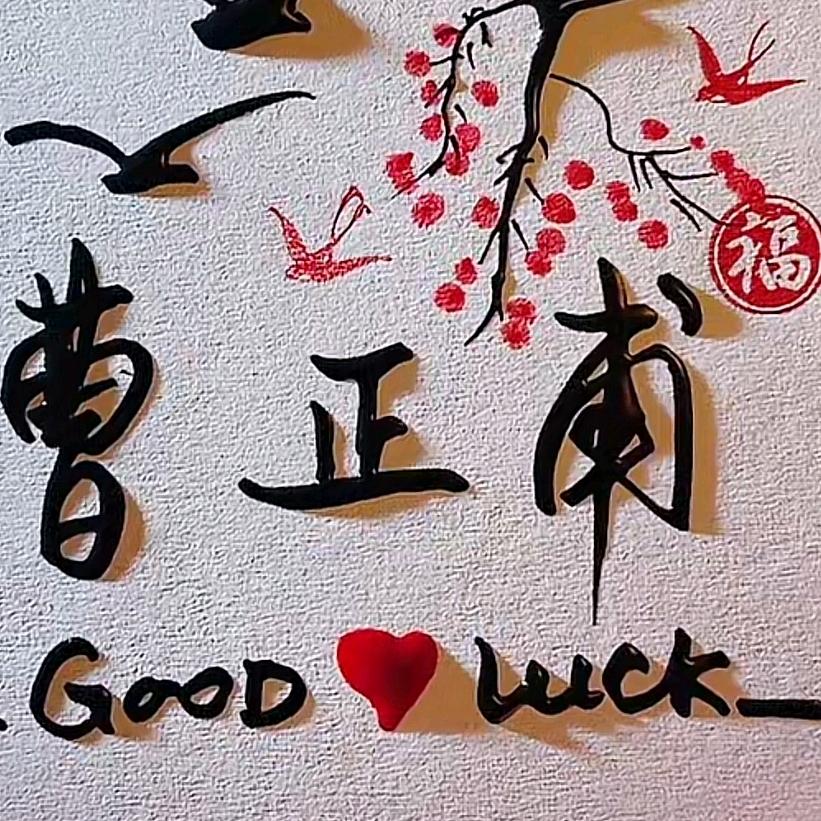 福
曹正甫
GOOD LUCK